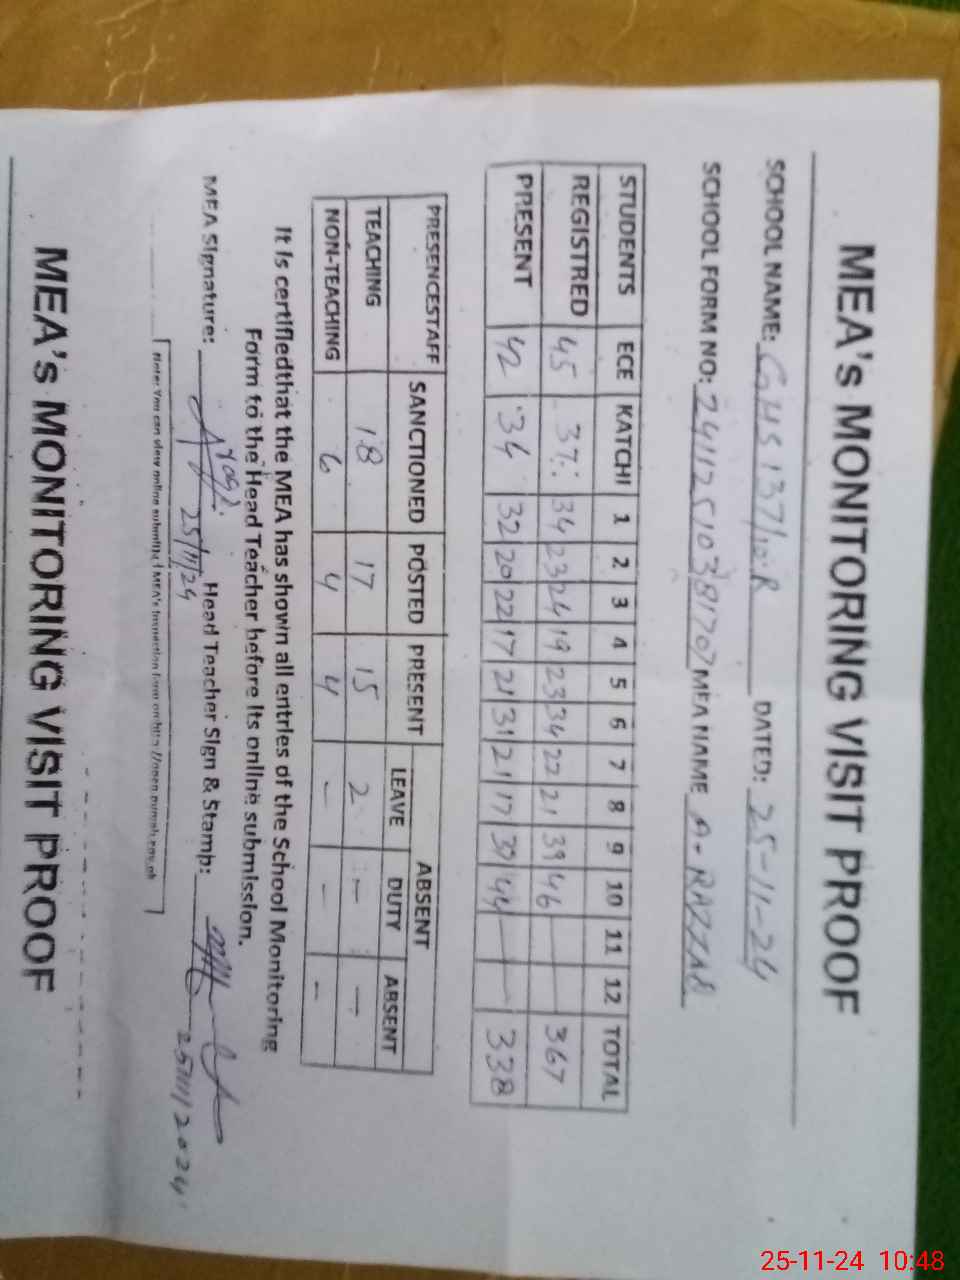 MEA's MONITORING VISIT PROOF
SCHOOL NAME: GHS 137/10.R DATED: 25-11-24
SCHOOL FORM NO: 24112510381707 MEA NAME A. RAZZAQ
STUDENTS ECE KATCHI 1 2 3 4 5 6 7 8 9 10 11 12 TOTAL
REGISTRED 45 37 34 23 24 19 23 34 22 21 39 46 — — 367
PRESENT 42 34 32 20 22 17 21 31 21 17 37 44 — — 338
PRESENCESTAFF SANCTIONED POSTED PRESENT ABSENT
LEAVE DUTY ABSENT
TEACHING 18 17 15 2 — —
NON-TEACHING 6 4 4 — — —
It is certifiedthat the MEA has shown all entries of the School Monitoring
Form to the Head Teacher before its online submission.
MEA Signature: 25/11/24 Head Teacher Sign & Stamp: 25/11/2024
Note: You can view online submitted MEA's Inspection form on http://open.punjab.gov.pk
MEA's MONITORING VISIT PROOF
25-11-24 10:48